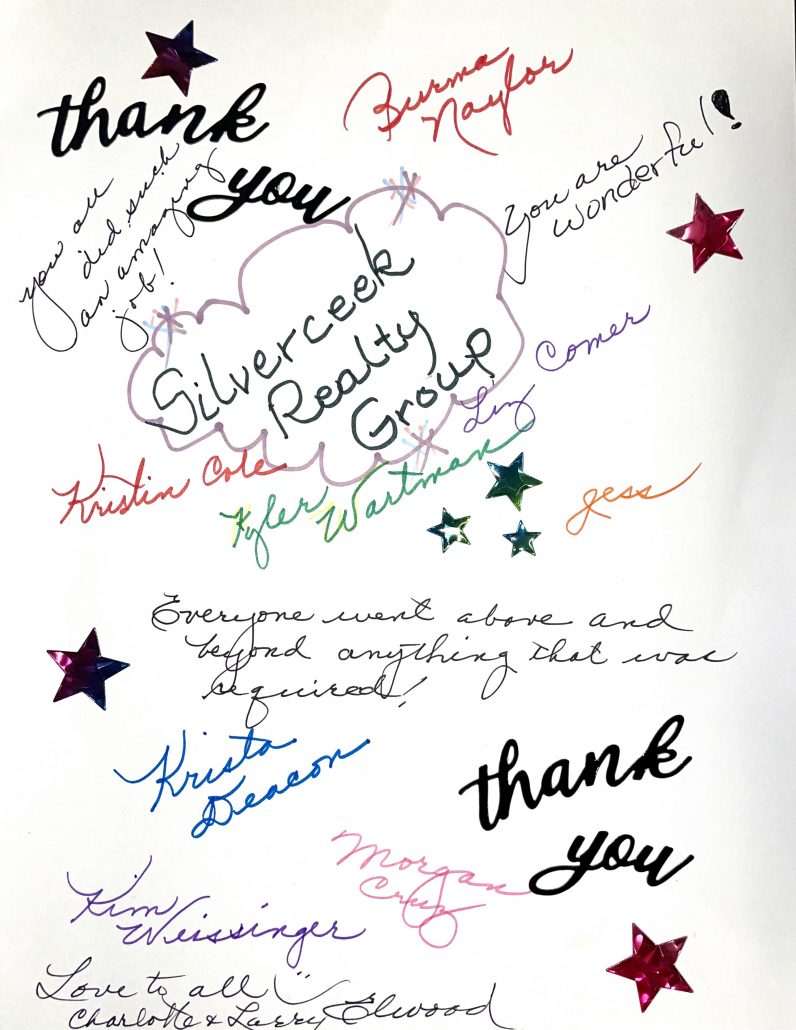 thank
you
Burma
Naylor
you all
did such
an amazing
job!
You are
wonderful!
Silverceek
Realty
Group
Liz Comer
Kristin Cole
Tyler Wartman
Jess
Everyone went above and
beyond anything that was
required!
Krista
Deacon
thank
you
Morgan
Cruz
Kim
Weissinger
Love to all
Charlotte & Larry Elwood